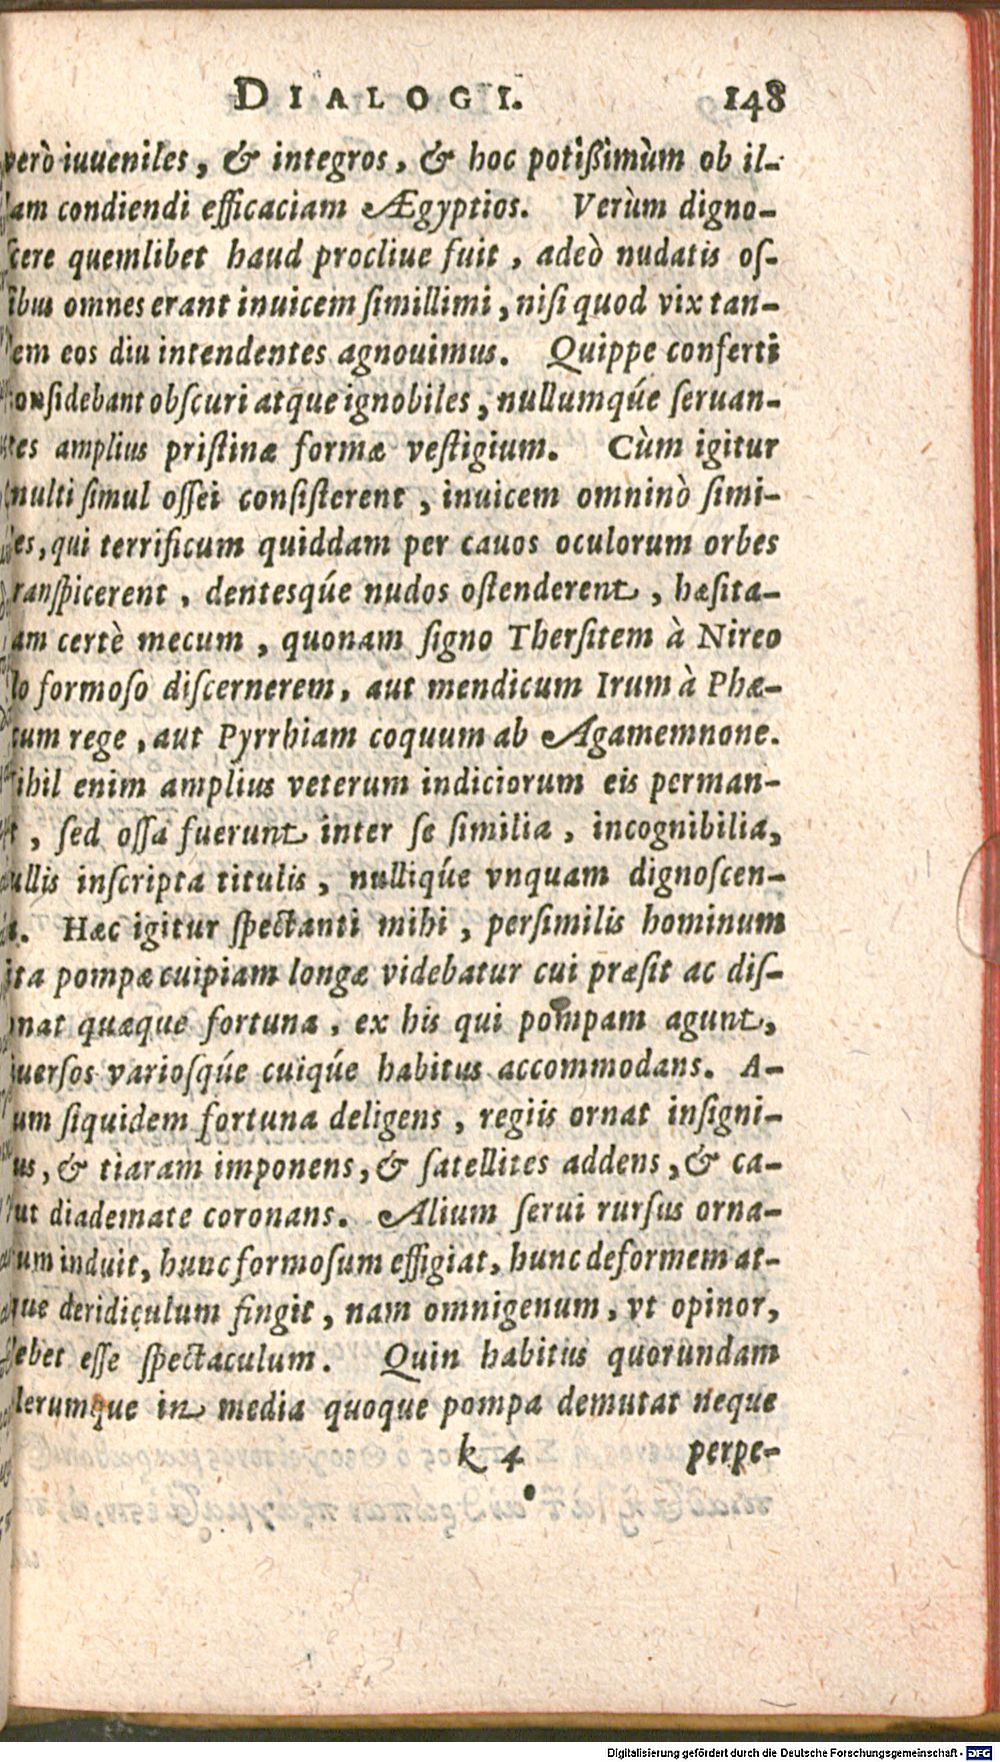 DIALOGI. 148
però iuueniles, & integros, & hoc potißimùm ob il-
lam condiendi efficaciam Ægyptios. Verùm digno-
scere quemlibet haud procliue fuit, adeò nudatis os-
sibus omnes erant inuicem simillimi, nisi quod vix tan-
dem eos diu intendentes agnouimus. Quippe conferti
considebant obscuri atque ignobiles, nullumqúe seruan-
tes amplius pristinæ formæ vestigium. Cùm igitur
multi simul ossei consisterent, inuicem omninò simi-
les, qui terrificum quiddam per cauos oculorum orbes
transpicerent, dentesqúe nudos ostenderent, hæsita-
am certè mecum, quonam signo Thersitem à Nireo
lo formoso discernerem, aut mendicum Irum à Phæ-
cum rege, aut Pyrrhiam coquum ab Agamemnone.
ihil enim amplius veterum indiciorum eis perman-
t, sed ossa fuerunt inter se similia, incognibilia,
ullis inscripta titulis, nulliqúe vnquam dignoscen-
a. Hæc igitur spectanti mihi, persimilis hominum
ita pompæ cuipiam longæ videbatur cui præsit ac dis-
onat quæque fortuna, ex his qui pompam agunt,
iuersos variosqúe cuiqúe habitus accommodans. A-
um siquidem fortuna deligens, regiis ornat insigni-
us, & tiaram imponens, & satellites addens, & ca-
ut diademate coronans. Alium serui rursus orna-
um induit, hunc formosum effigiat, hunc deformem at-
que deridiculum fingit, nam omnigenum, vt opinor,
debet esse spectaculum. Quin habitus quorundam
lerumque in media quoque pompa demutat neque
k 4 perpe-
Digitalisierung gefördert durch die Deutsche Forschungsgemeinschaft - DFG